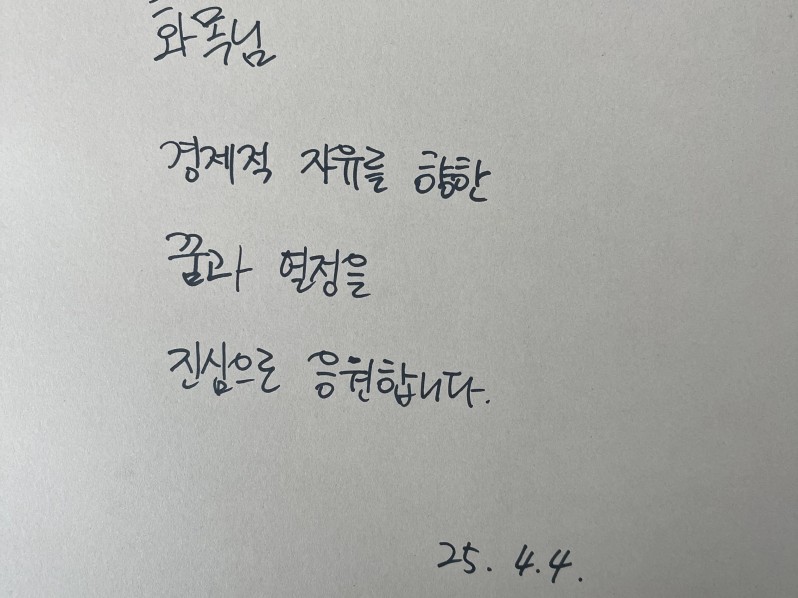 화폭님
경제적 자유를 향한
꿈과 열정을
진심으로 응원합니다.
25. 4.4.